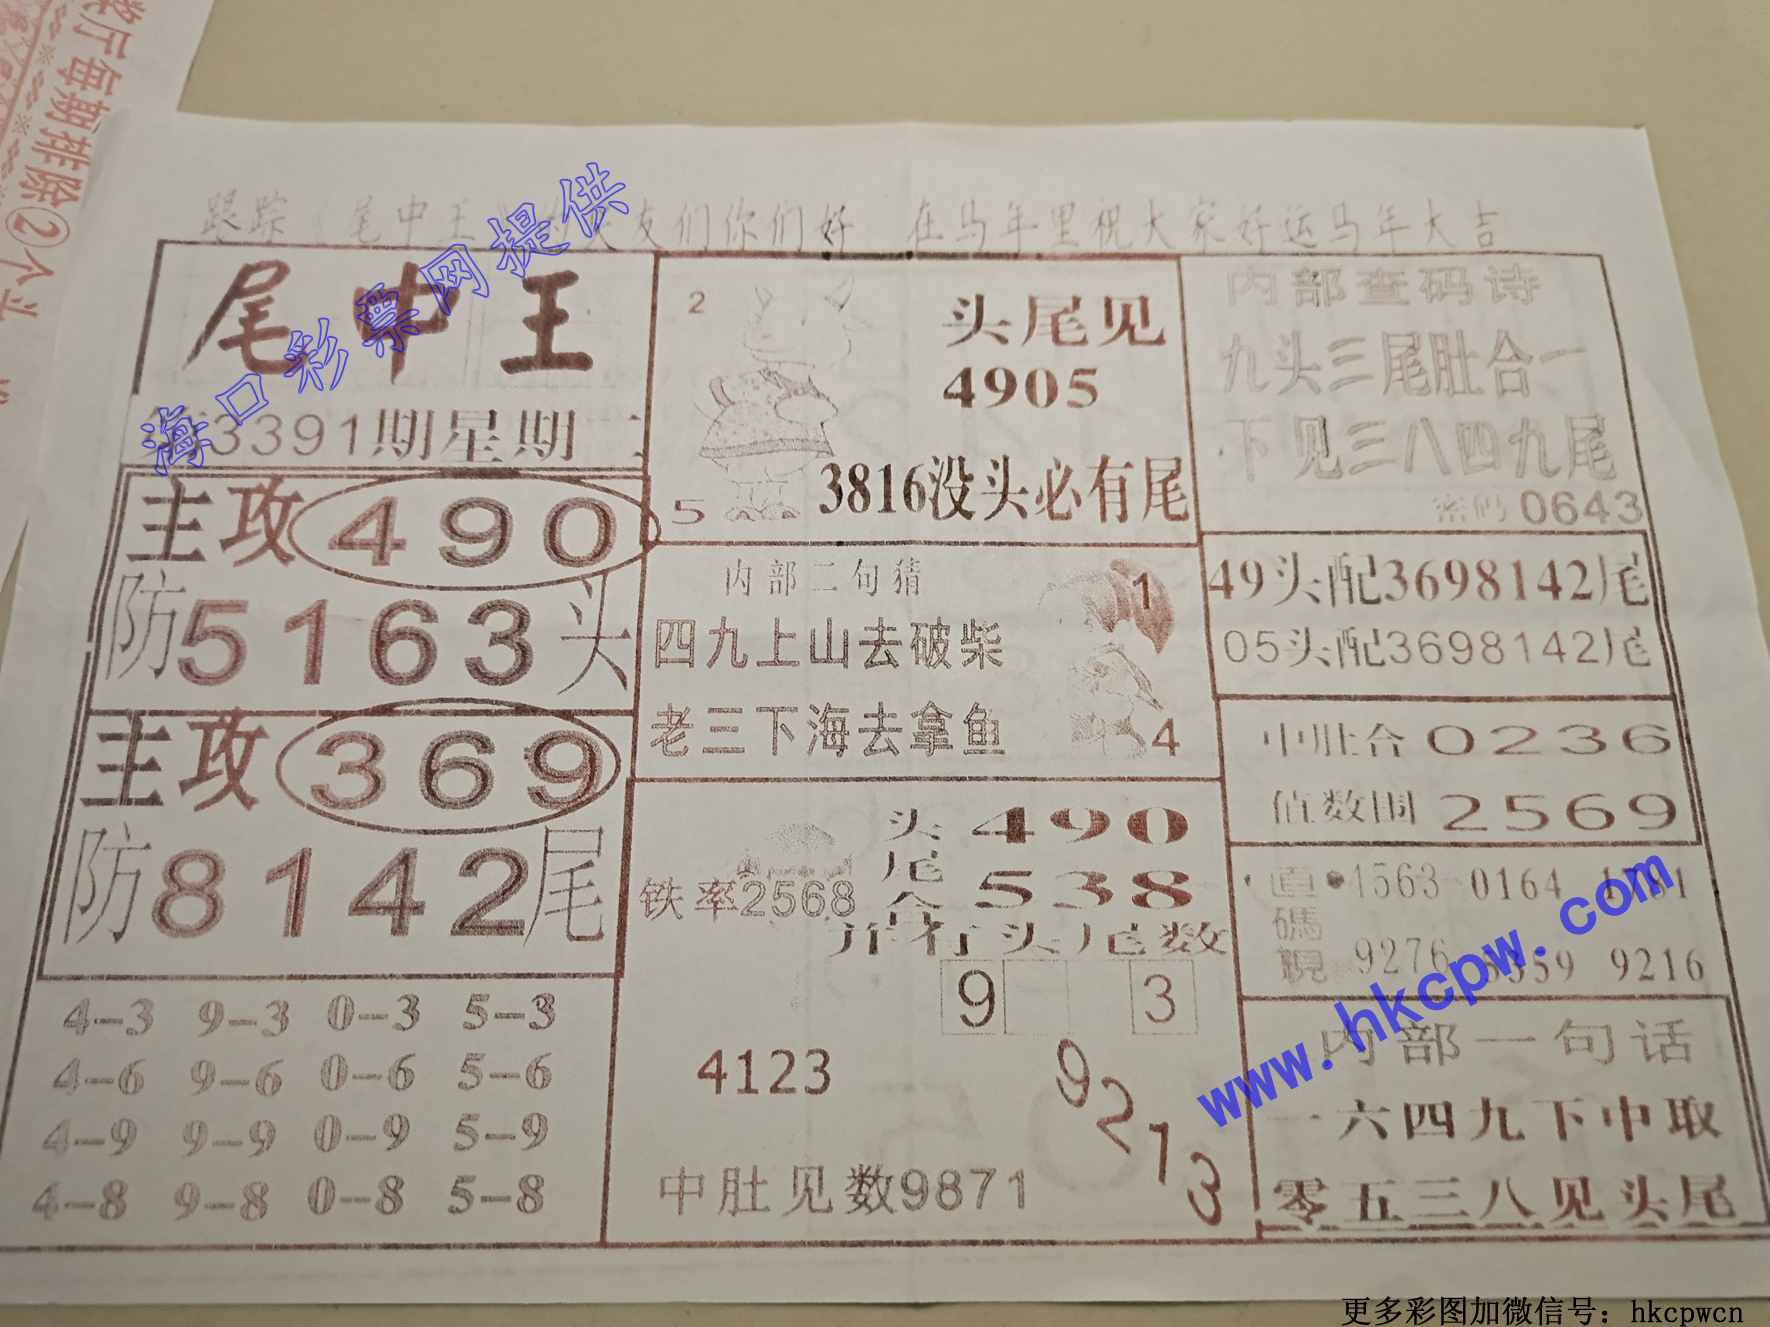 餐厅每期排除②个头
跟踪《尾中王》的友们你们好 在马年里祝大家好运马年大吉
海口彩票网提供
尾中王
3391期星期二
主攻490
防5163头
主攻369
防8142尾
4-3 9-3 0-3 5-3
4-6 9-6 0-6 5-6
4-9 9-9 0-9 5-9
4-8 9-8 0-8 5-8
2
头尾见
4905
5
3816没头必有尾
内部二句猜
1
四九上山去破柴
老三下海去拿鱼
4
头 490
尾
合 538
铁率2568
并有头尾数
9 3
4123
9213
中肚见数9871
内部查码诗
九头三尾肚合一
下见三八四九尾
密码0643
49头配3698142尾
05头配3698142尾
中肚合0236
值数围2569
直碼現
4563 0164
9276 9216
www.hkcpw.com
内部一句话
一六四九下中取
零五三八见头尾
更多彩图加微信号：hkcpwcn